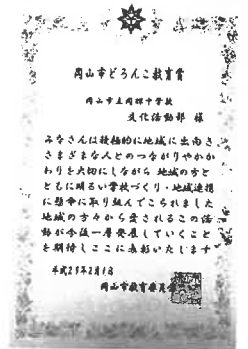 岡山市どろんこ教育賞
岡山市立岡輝中学校
文化活動部 様
みなさんは積極的に地域に出向き
さまざまな人とのつながりやかか
わりを大切にしながら 地域の方と
ともに明るい学校づくり・地域連携
に懸命に取り組んでこられました
地域の方々から愛されるこの活
動が今後一層発展していくこと
を期待しここに表彰いたします
平成25年2月1日
岡山市教育委員会